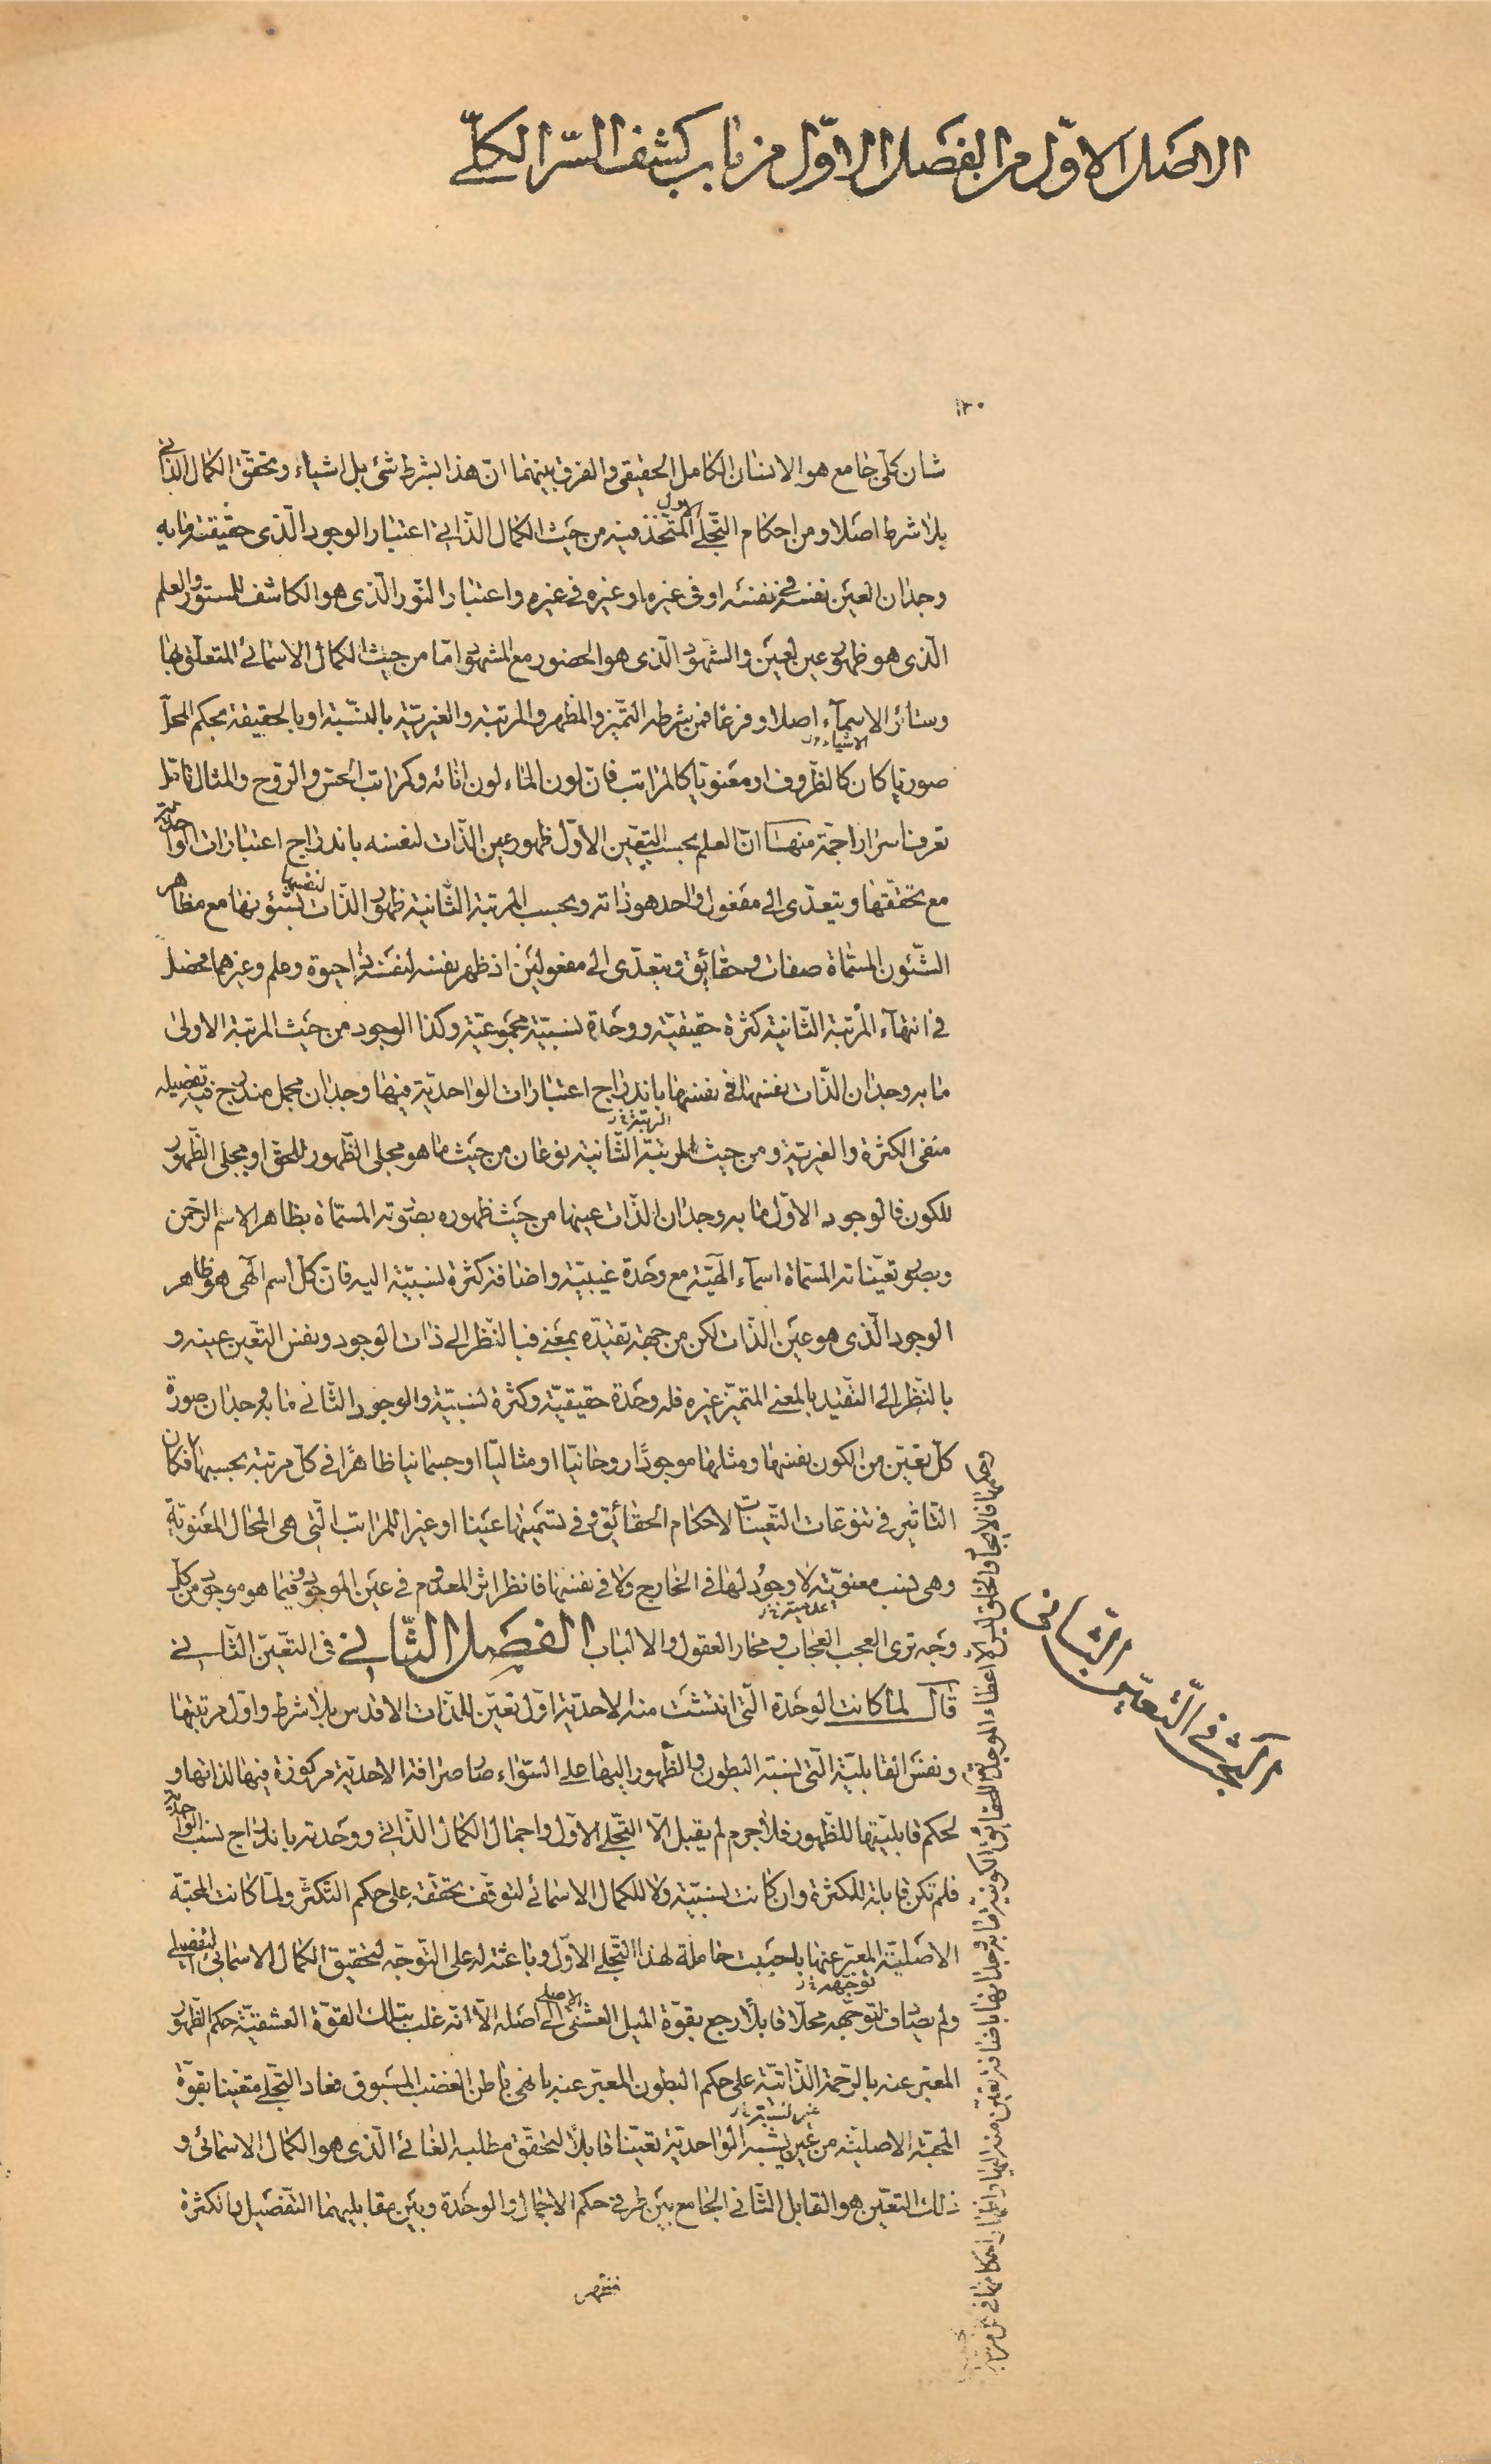 الاصل الاوّل من الفصل الاوّل من باب كشف السّر الكلّى
١٢٠
شان كلّى جامع هو الانسان الكامل الحقيقى والفرق بينهما انّ هذا بشرط شئ بل اشياء وتحقّق الكمال الذاتى
بلا شرط اصلا ومن احكام التجلّى الاول المتّخذ فيه من حيث الكمال الذّاتى اعتبار الوجود الّذى حقيقته ما به
وجدان العين نفسه فى نفسه او فى غيره او غيره فى غيره واعتبار النّور الّذى هو الكاشف للمستور والعلم
الّذى هو ظهور عين لعين والشّهود الّذى هو الحضور مع المشهود امّا من حيث الكمال الاسمائى المتعلّق بها
وسائر الاسمآء اصلا وفرعا فمن شرطه التّميّز والمظهر والمرتبة والغيريّة بالنّسبة او بالحقيقة بحكم المحلّ
الاشياء
صوريّا كان كالظّروف او معنويّا كالمراتب فانّ لون الماء لون انائه وكمراتب الحسّ والرّوح والمثال تامّل
تعرف اسرارا جمّة منها انّ العلم بحسب التعيّن الاوّل ظهور عين الذّات لنفسه باندراج اعتبارات الواحديّة
مع تحقّقها ويتعدّى الى مفعول واحد هو ذاته وبحسب المرتبة الثّانية ظهور الذّات لنفسها بشئونها مع مظاهر
الشّئون المسمّاة صفات وحقائق ويتعدّى الى مفعولين اذ ظهر نفسه لنفسه ذا حيوة وعلم وغيرهما فحصل
فى انتهآء المرتبة الثّانية كثرة حقيقيّة ووحدة نسبيّة مجموعيّة وكذا الوجود من حيث المرتبة الاولى
ما به وجدان الذّات نفسها فى نفسها باندراج اعتبارات الواحديّة فيها وجدان مجمل مندرج فيه تفصيله
الرتبة
منفى الكثرة والغيريّة ومن حيث المرتبة الثّانية نوعان من حيث ما هو مجلى الظّهور للحقّ او مجلى الظّهور
للكون فالوجود الاوّل ما به وجدان الذّات عينها من حيث ظهوره بصورته المسمّاة بظاهر الاسم الرّحمن
وبصور تعيّناته المسمّاة اسمآء الٓهيّة مع وحدة غيبيّة واضافة كثرة نسبيّة اليه فانّ كلّ اسم الٓهى هو ظاهر
الوجود الّذى هو عين الذّات لكن من جهة تقيّده بمعنى فبالنّظر الى ذات الوجود ونفس التّعين عينه و
بالنّظر الى التّقيّد بالمعنى المتميّز غيره فله وحدة حقيقيّة وكثرة نسبيّة والوجود الثّانى ما به وجدان صورة
كلّ تعيّن من الكون نفسها ومثلها موجودًا روحانيّا او مثاليّا او جسمانيا ظاهرًا فى كلّ مرتبة بحسبها فكان
التّاثير فى تنوّعات التّعيّنات لاحكام الحقائق وفى تسميتها عينا او غيرا للمراتب الّتى هى المحالّ المعنويّة
وهى نسب معنويّة لا وجود لها فى الخارج ولا فى نفسها فانظر اثر المعدوم فى عين الموجود وفيما هو موجود من كلّ
وجه ترى العجب العجاب ومحار العقول والالباب الفصل الثّانى فى التعيّن الثّانى
قال لما كانت الوحدة الّتى انتشئت منه الاحديّة اوّل تعيّن للذّات الاقدس بلا شرط واوّل مرتبتها
ونفس القابليّة الّتى نسبة البطون والظّهور اليها على السّواء صار صرافة الاحديّة مركوزة فيها لذاتها و
لحكم قابليّتها للظّهور فلا جرم لم يقبل الّا التّجلّى الاوّل واجمال الكمال الذّاتى ووحدته باندراج نسب الواحديّة
فلم تكن قابلة للكثرة وان كانت نسبيّة ولا للكمال الاسمائى لتوقّف تحقّقه على حكم التّكثّر ولمّا كانت المحبّة
الاصليّة المعبّر عنها باحببت حاملة لهذا التّجلّى الاوّل وباعثة له على التّوجّه لتحقيق الكمال الاسمائى التفصيلى
توجّهه
ولم يصادف لتوجّهه محلّا قابلا رجع بقوّة الميل العشقى الاصلى الى اصله الّا انّه غلب بتلك القوّة العشقيّة حكم الظّهور
المعبّر عنه بالرّحمة الذّاتيّة على حكم البطون المعبّر عنه بانهى باطن الغضب المسبوق فعاد التّجلّى متعيّنا بقوّة
المحبّة الاصليّة من عين نسبة الواحديّة تعيّنا قابلا لتحقّق مطلبه الغائى الّذى هو الكمال الاسمائى و
ذلك التعيّن هو القابل الثّانى الجامع بين طرفى حكم الاجمال والوحدة وبين مقابليهما التّفصيل والكثرة
البحث فى التّعيّن الثّانى